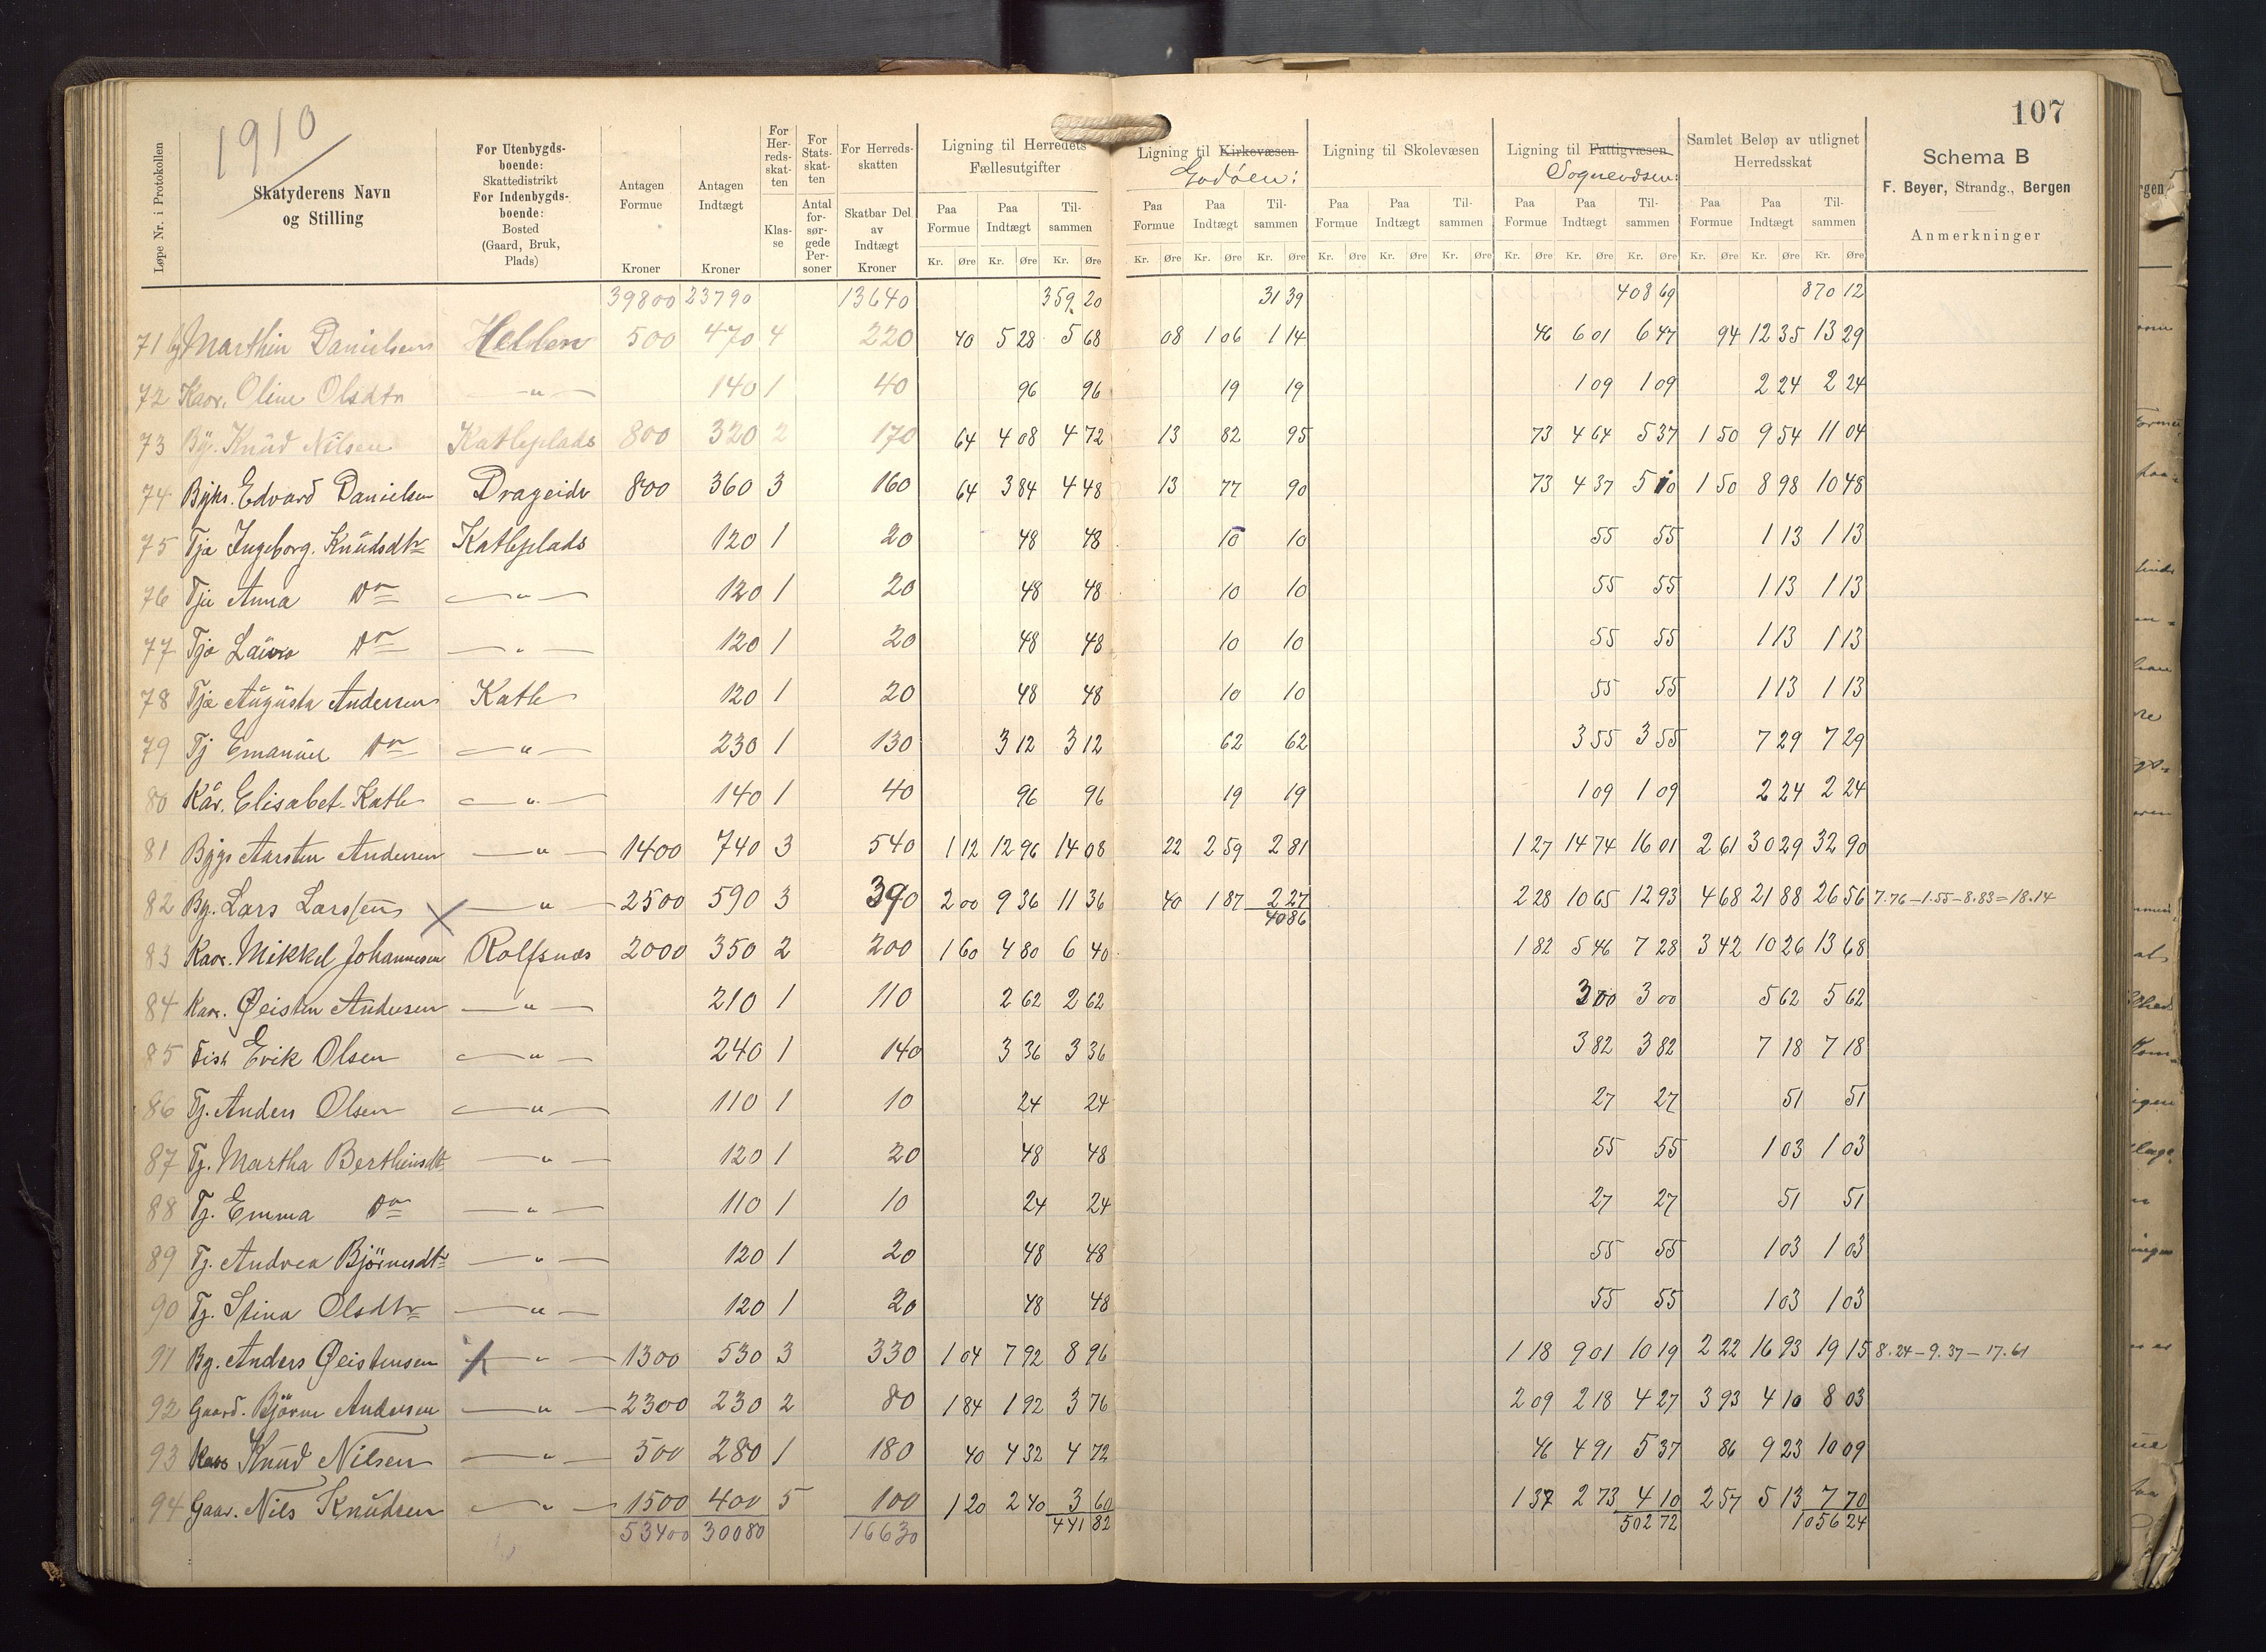 107
1910
Løpe Nr. i Protokollen
Skatyderens Navn
og Stilling
For Utenbygds-
boende:
Skattedistrikt
For Indenbygds-
boende:
Bosted
(Gaard, Bruk,
Plads)
Antagen
Formue
Kroner
Antagen
Indtægt
Kroner
For
Her-
reds-
skat-
ten
Klas-
se
For
Stats-
skat-
ten
Antal
for-
sør-
gede
Per-
soner
For Herreds-
skatten
Skatbar Del
av
Indtægt
Kroner
Ligning til Herredets
Fællesutgifter
Paa Formue Paa Indtægt Til-sammen
Kr. Øre Kr. Øre Kr. Øre
Ligning til Kirkevæsen
Godøen:
Paa Formue Paa Indtægt Til-sammen
Kr. Øre Kr. Øre Kr. Øre
Ligning til Skolevæsen
Paa Formue Paa Indtægt Til-sammen
Kr. Øre Kr. Øre Kr. Øre
Ligning til Fattigvæsen
Sognevæsen:
Paa Formue Paa Indtægt Til-sammen
Kr. Øre Kr. Øre Kr. Øre
Samlet Beløp av utlignet
Herredsskat
Paa Formue Paa Indtægt Til-sammen
Kr. Øre Kr. Øre Kr. Øre
Schema B
F. Beyer, Strandg., Bergen
Anmerkninger
39800 23790 13640 359 20 31 39 408 69 870 12
71 Marthin Danielsen Helden 500 470 4 220 40 5 28 5 68 08 1 06 1 14 46 6 01 6 47 94 12 35 13 29
72 Kaar. Oline Olsdtr — " — 140 1 40 96 96 19 19 1 09 1 09 2 24 2 24
73 Bg. Knud Nilsen Katleplads 800 320 2 170 64 4 08 4 72 13 82 95 73 4 64 5 37 1 50 9 54 11 04
74 Edvard Danielsen Drageide 800 360 3 160 64 3 84 4 48 13 77 90 73 4 37 5 10 1 50 8 98 10 48
75 Tje Ingeborg. Knudsdtr Katleplads 120 1 20 48 48 10 10 55 55 1 13 1 13
76 Tje Anna Do — " — 120 1 20 48 48 10 10 55 55 1 13 1 13
77 Tje Laura Do — " — 120 1 20 48 48 10 10 55 55 1 13 1 13
78 Tje Augusta Andersen Katle 120 1 20 48 48 10 10 55 55 1 13 1 13
79 Tj Emanuel Do — " — 230 1 130 3 12 3 12 62 62 3 55 3 55 7 29 7 29
80 Kår. Elisabet Katle — " — 140 1 40 96 96 19 19 1 09 1 09 2 24 2 24
81 Aarsten Andersen — " — 1400 740 3 540 1 12 12 96 14 08 22 2 59 2 81 1 27 14 74 16 01 2 61 30 29 32 90
82 Bg. Lars Larssen — " — 2500 590 3 390 2 00 9 36 11 36 40 1 87 2 27 2 28 10 65 12 93 4 68 21 88 26 56 7.76 – 1.55 – 8.83 = 18.14
40 86
83 Kaar. Mikkel Johannesen Rolfsnæs 2000 350 2 200 1 60 4 80 6 40 1 82 5 46 7 28 3 42 10 26 13 68
84 Kaar. Øeisten Andersen — " — 210 1 110 2 62 2 62 3 00 3 00 5 62 5 62
85 Fisk Erik Olsen — " — 240 1 140 3 36 3 36 3 82 3 82 7 18 7 18
86 Tj. Anders Olsen — " — 110 1 10 24 24 27 27 51 51
87 Tj. Martha Berthinsdtr — " — 120 1 20 48 48 55 55 1 03 1 03
88 Tj. Emma Do — " — 110 1 10 24 24 27 27 51 51
89 Tj. Andrea Björnesdtr — " — 120 1 20 48 48 55 55 1 03 1 03
90 Tj. Stina Olsdtr — " — 120 1 20 48 48 55 55 1 03 1 03
91 Bg. Anders Øeistensen — " — 1300 530 3 330 1 04 7 92 8 96 1 18 9 01 10 19 2 22 16 93 19 15 8.24 – 9.37 – 17.61
92 Gaard. Björne Andersen — " — 2300 230 2 80 1 84 1 92 3 76 2 09 2 18 4 27 3 93 4 10 8 03
93 Kaar Knud Nilsen — " — 500 280 1 180 40 4 32 4 72 46 4 91 5 37 86 9 23 10 09
94 Gaar. Nils Knudsen — " — 1500 400 5 100 1 20 2 40 3 60 1 37 2 73 4 10 2 57 5 13 7 70
53400 30080 16630 441 82 502 72 1056 24